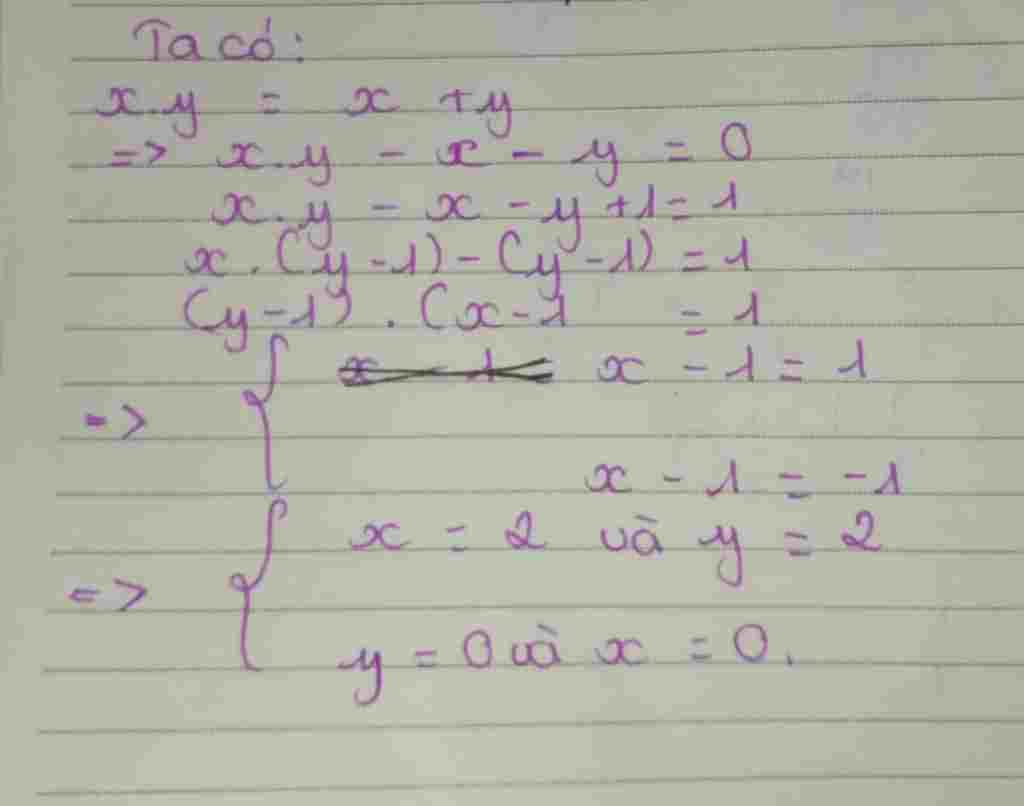 Ta có:
x.y = x + y
=> x.y - x - y = 0
x.y - x - y + 1 = 1
x.(y - 1) - (y - 1) = 1
(y - 1) . (x - 1 = 1
=> { x - 1 = 1
x - 1 = -1
=> { x = 2 và y = 2
y = 0 và x = 0.